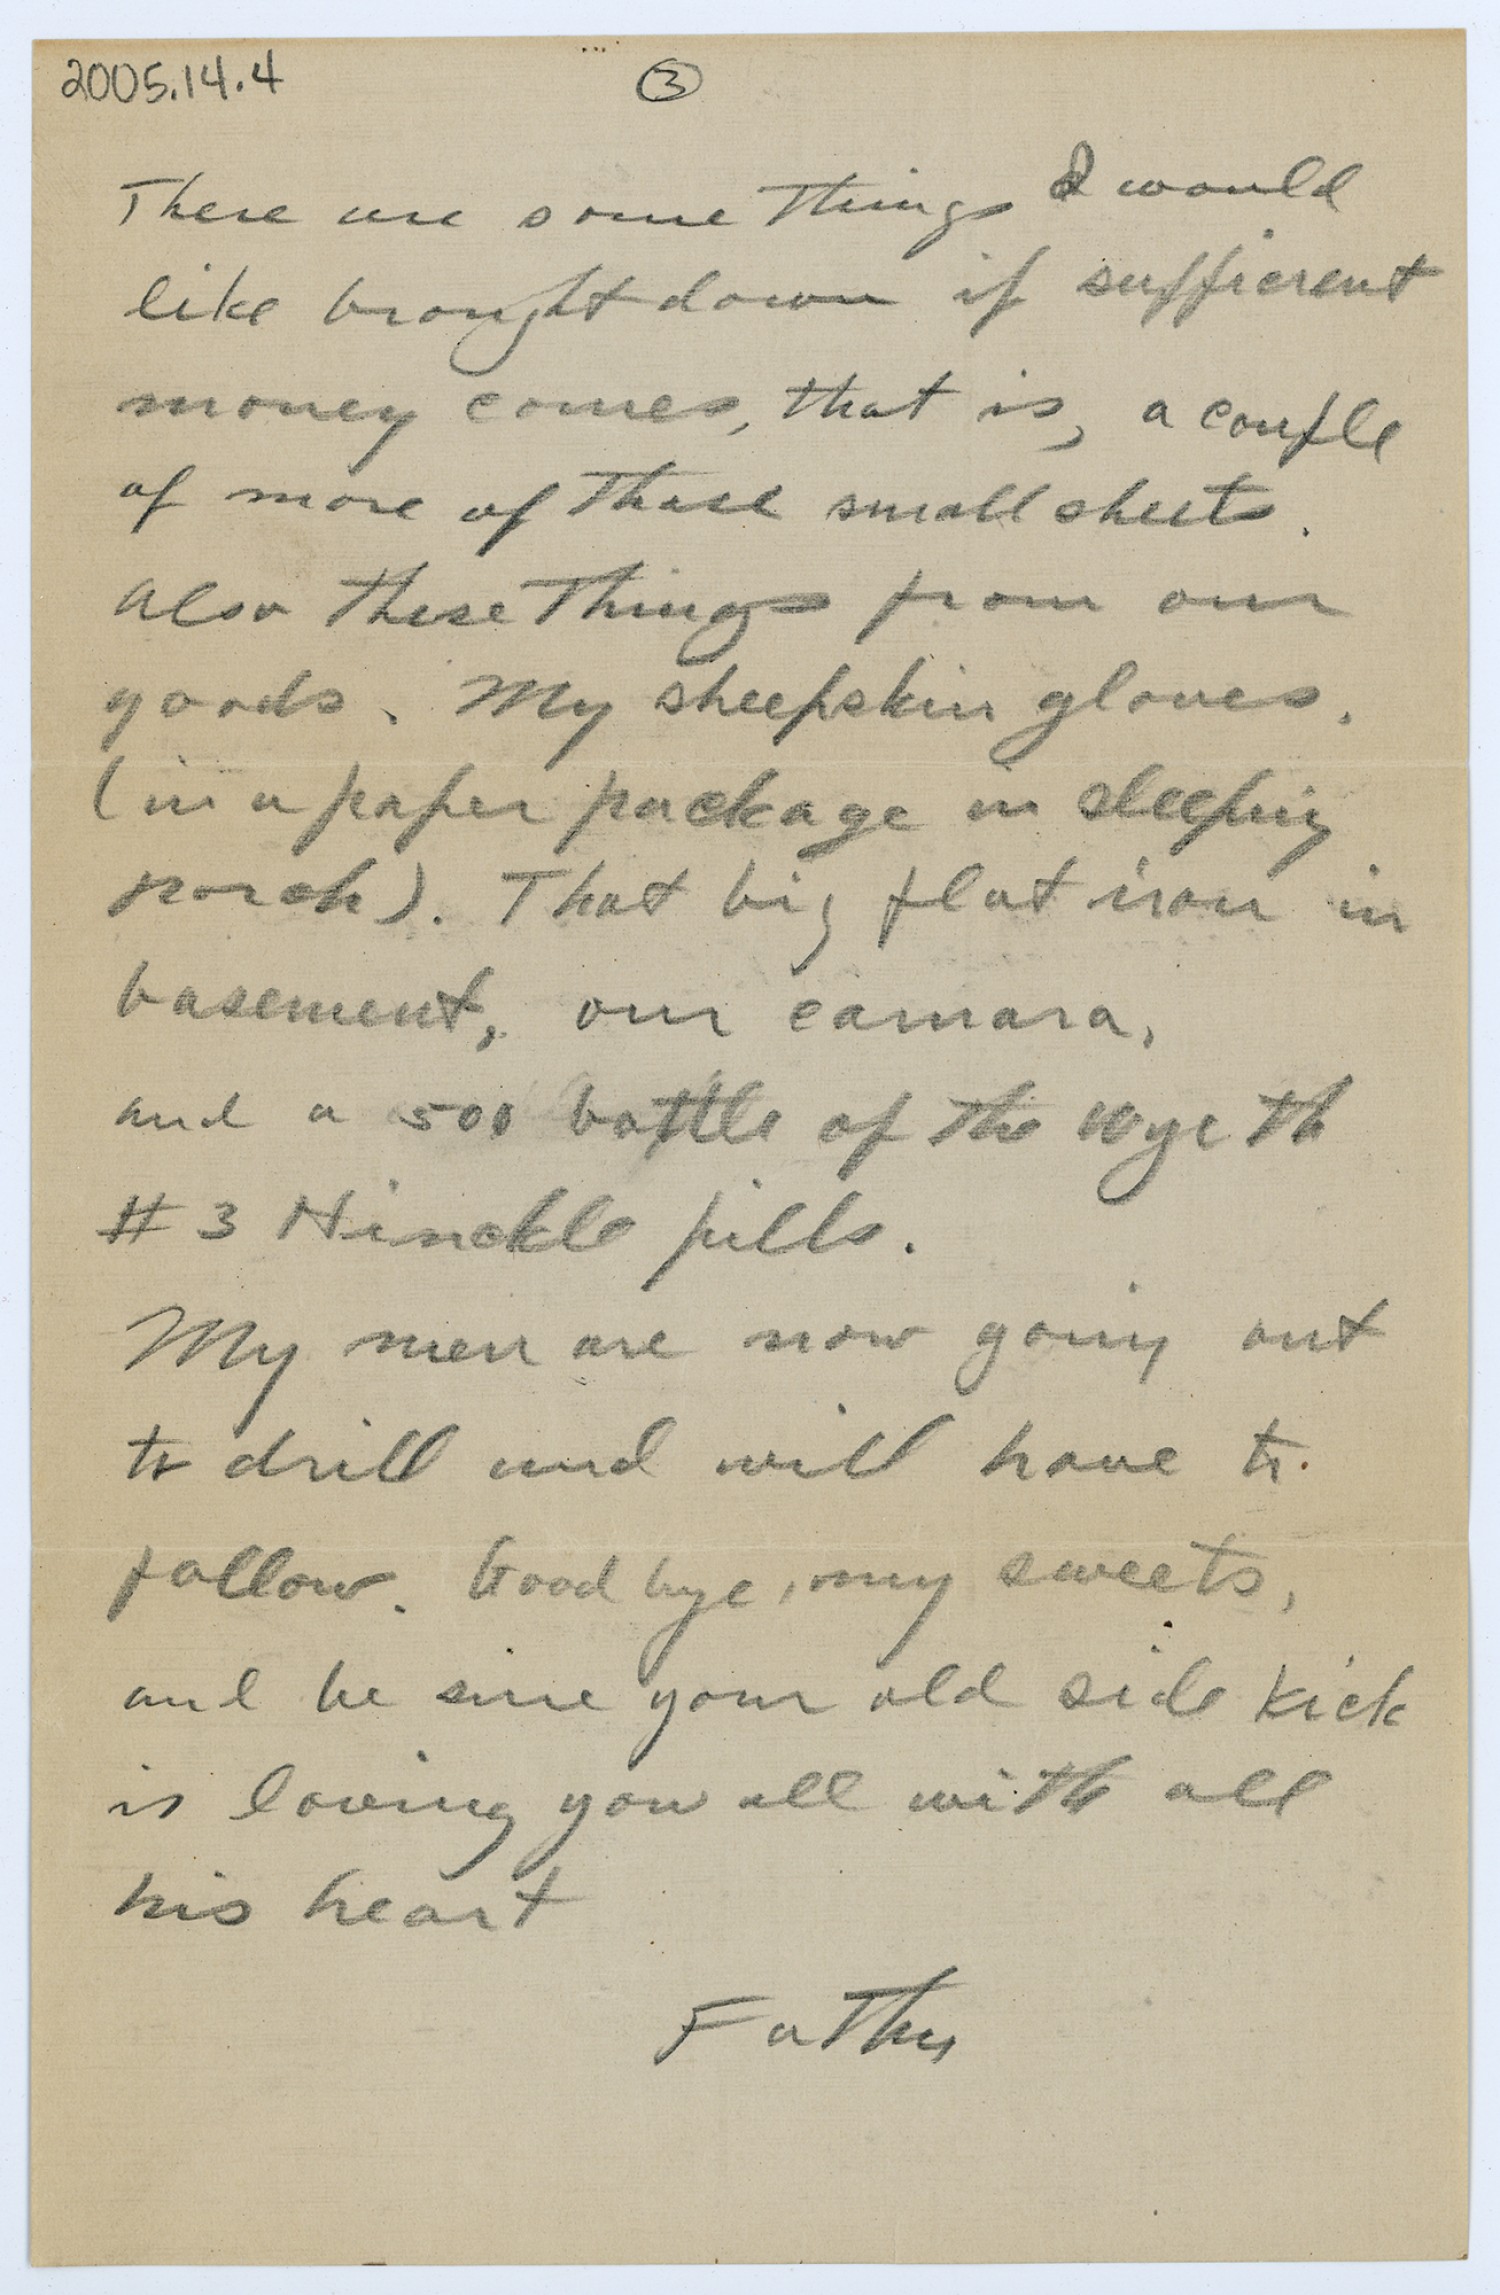 2005.14.4
3
There are some things I would
like brought down if sufficient
money comes, that is, a couple
of more of those small sheets.
Also these things from our
goods. My sheepskin gloves,
(in a paper package in sleeping
porch). That big flat iron in
basement, our camara,
and a 500 bottle of the Wyeth
# 3 Hinckle pills.
My men are now going out
to drill and will have to
follow. Good bye, my sweets,
and be sure your old side kick
is loving you all with all
his heart
Father